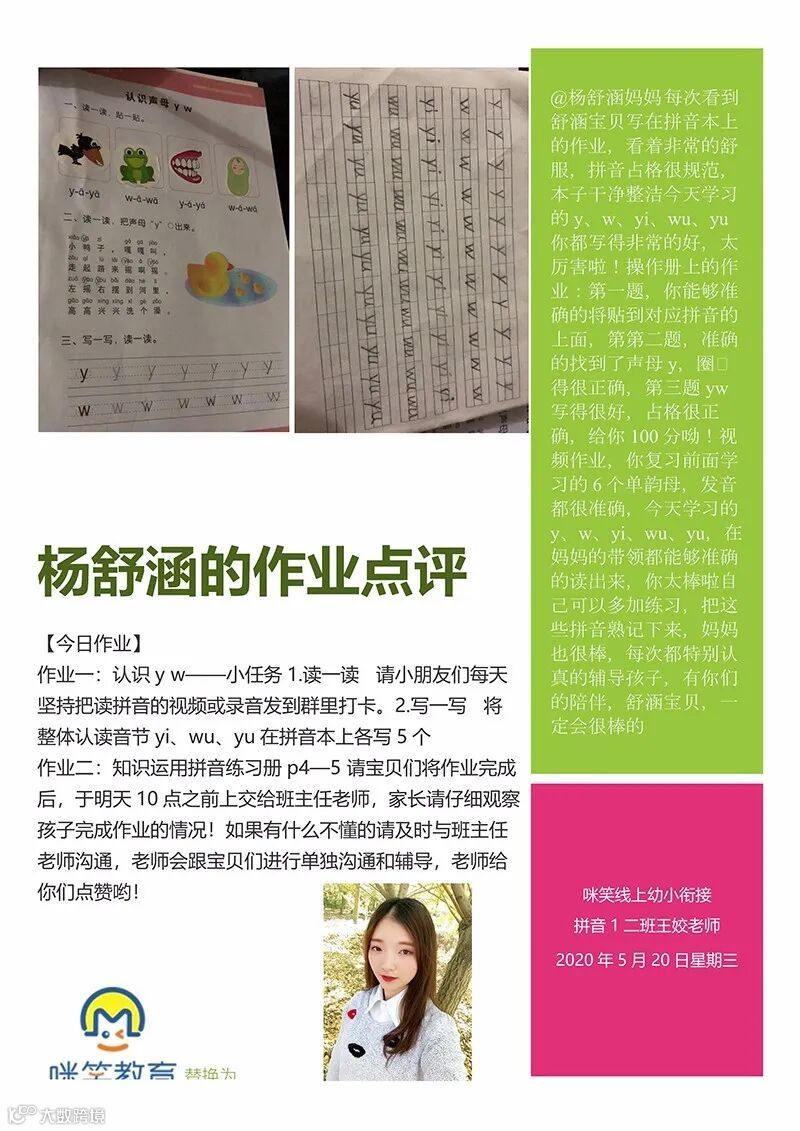 认识声母 y w
一、读一读，贴一贴。
y-ā-yā
w-ā-wā
y-á-yá
w-á-wá
二、读一读，把声母“y”○出来。
小鸭子，嘎嘎叫，
走起路来摇啊摇。
左摇右摆到河里，
高高兴兴洗个澡。
三、写一写，读一读。
y y y y y y y
w w w w w w w
@杨舒涵妈妈 每次看到
舒涵宝贝写在拼音本上
的作业，看着非常的舒
服，拼音占格很规范，
本子干净整洁今天学习
的 y、w、yi、wu、yu
你都写得非常的好，太
厉害啦！操作册上的作
业：第一题，你能够准
确的将贴到对应拼音的
上面，第第二题，准确
的找到了声母 y，圈□
得很正确，第三题 yw
写得很好，占格很正
确，给你 100 分呦！视
频作业，你复习前面学
习的 6 个单韵母，发音
都很准确，今天学习的
y、w、yi、wu、yu，在
妈妈的带领都能够准确
的读出来，你太棒啦自
己可以多加练习，把这
些拼音熟记下来，妈妈
也很棒，每次都特别认
真的辅导孩子，有你们
的陪伴，舒涵宝贝，一
定会很棒的
杨舒涵的作业点评
【今日作业】
作业一：认识 y w——小任务 1.读一读 请小朋友们每天
坚持把读拼音的视频或录音发到群里打卡。2.写一写 将
整体认读音节 yi、wu、yu 在拼音本上各写 5 个
作业二：知识运用拼音练习册 p4—5 请宝贝们将作业完成
后，于明天 10 点之前上交给班主任老师，家长请仔细观察
孩子完成作业的情况！如果有什么不懂的请及时与班主任
老师沟通，老师会跟宝贝们进行单独沟通和辅导，老师给
你们点赞哟！
咪笑线上幼小衔接
拼音 1 二班王姣老师
2020 年 5 月 20 日星期三
咪笑教育
替换为
大数跨境